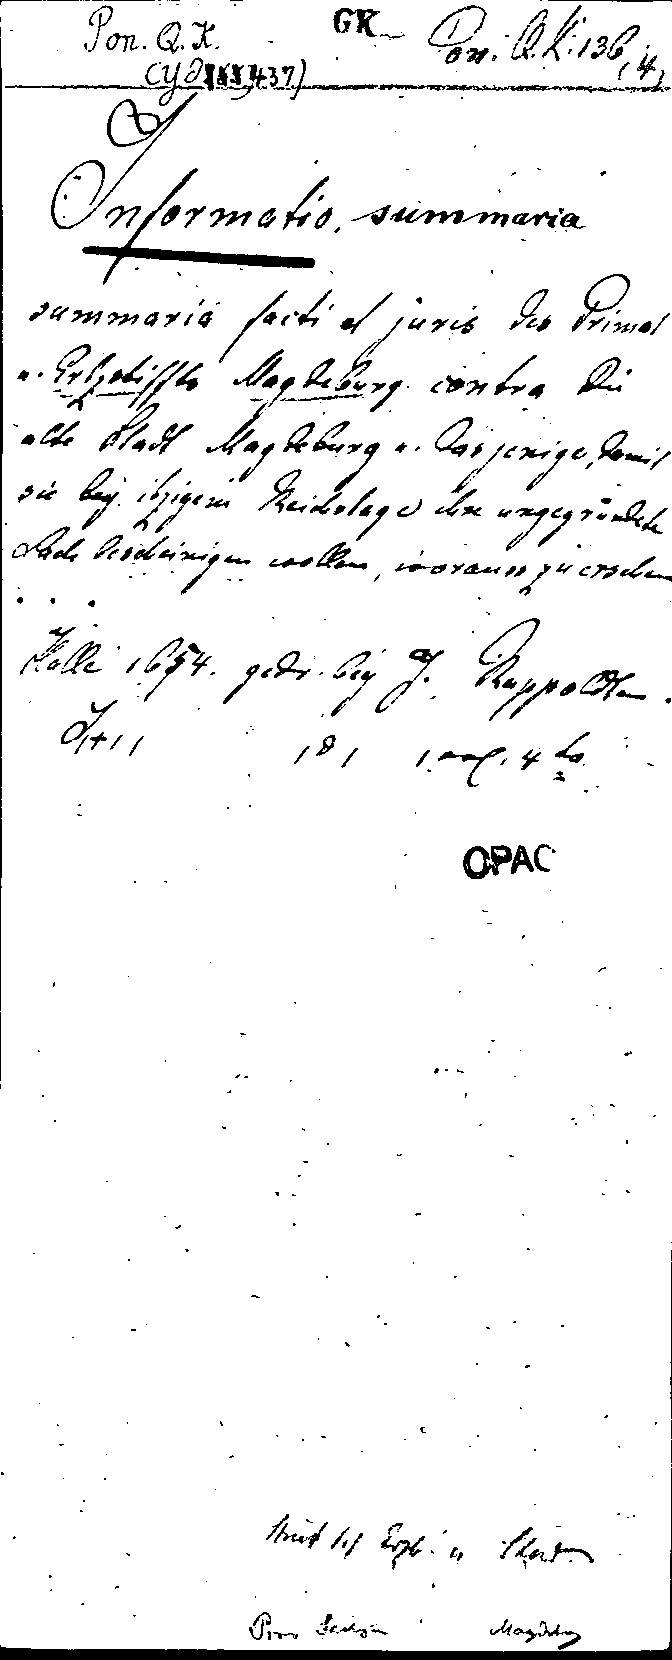 Pon. Q. K.
GK
Pon. Q. K. 136, 4,
437)
Informatio, summaria
summaria facti et juris des Primat
u. Ertzstiffts Magdeburg contra die
alte Stadt Magdeburg u. dasjenige, damit
sie bey itzigem Reichstage ihre ungegründete
Sache bescheinigen wollen, worauss zu ersehen
. . .
Halle 1654. gedr. bey
181 4to
OPAC
Erzb. u Stadt
Prov Sachsen Magdeburg